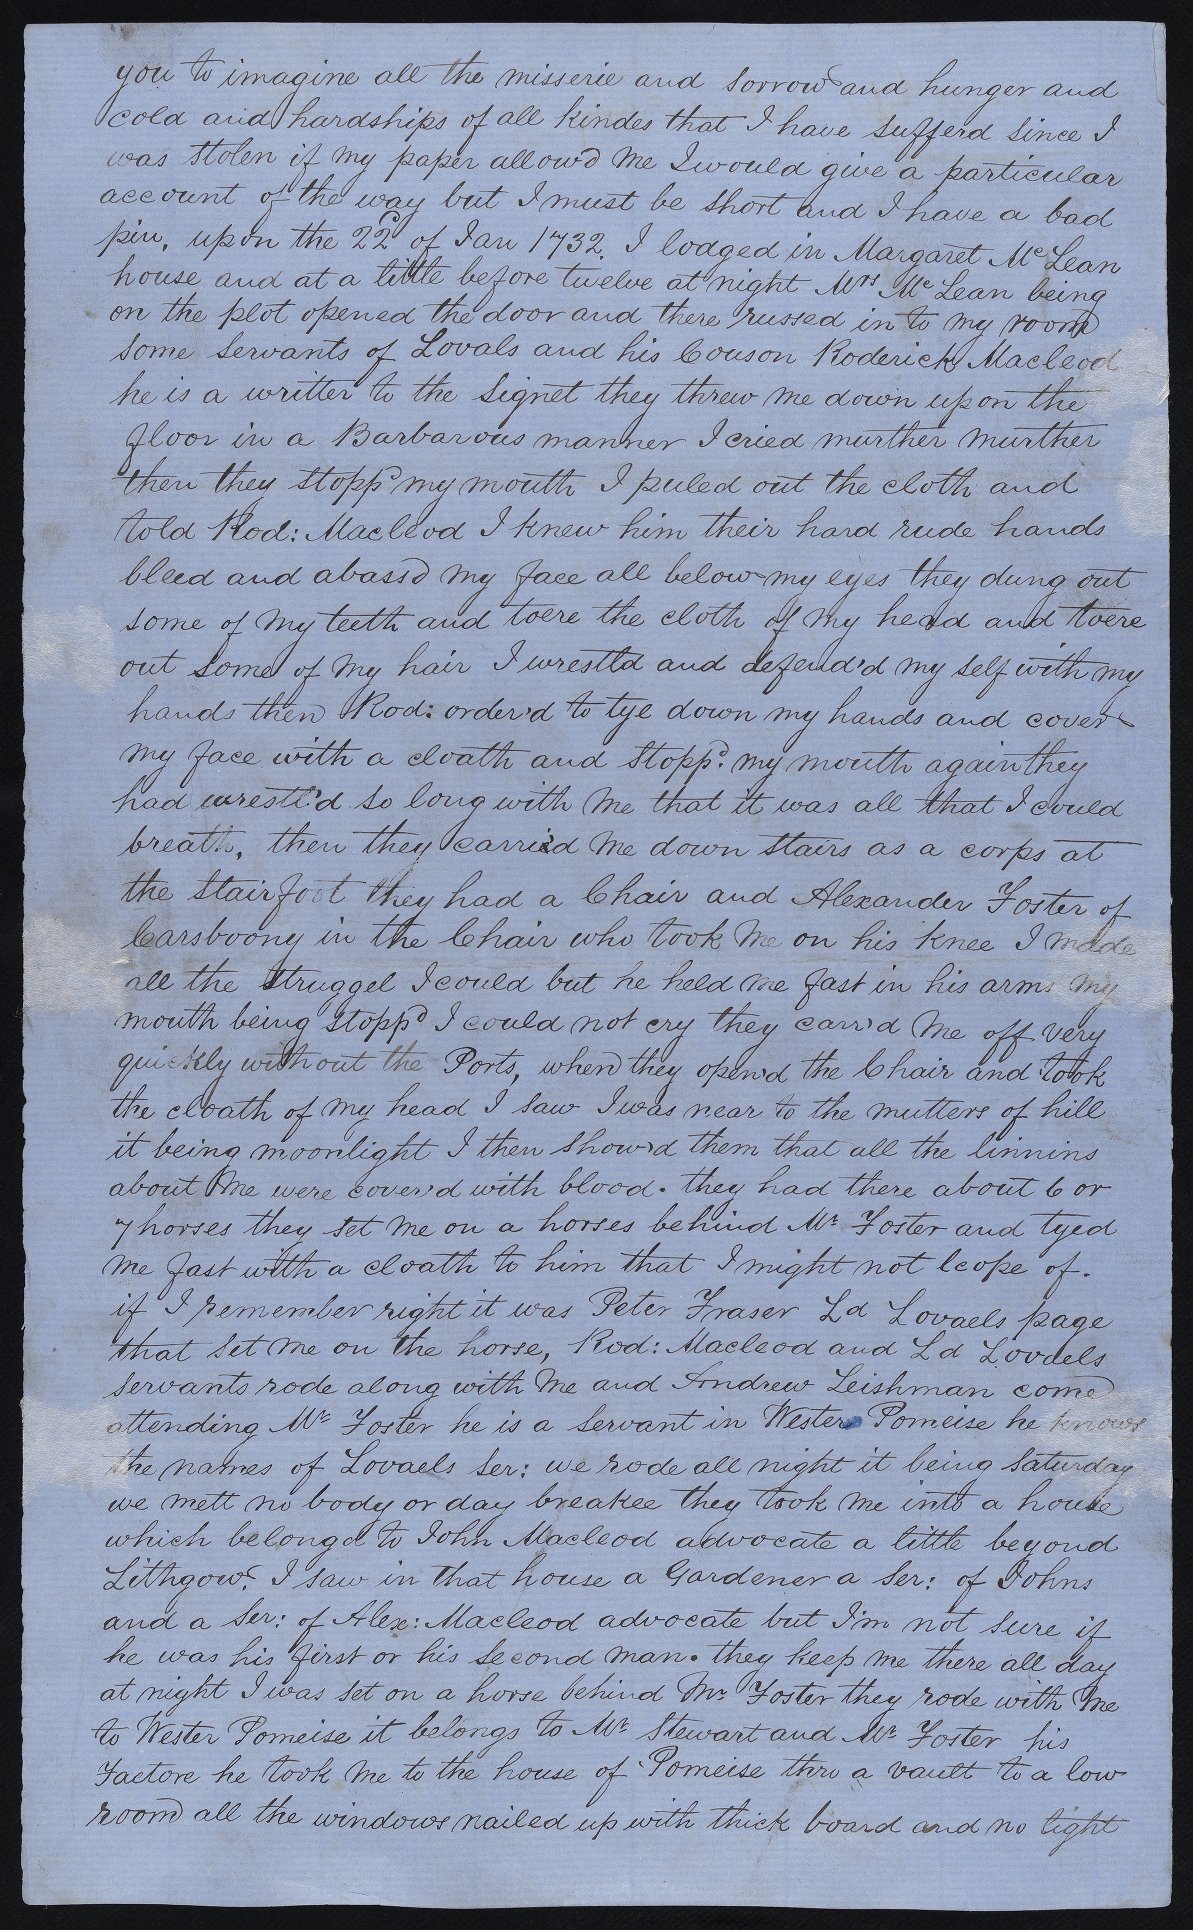 you to imagine all the misserie and sorrow and hunger and
cold and hardships of all kindes that I have sufferd since I
was stolen if my paper allow'd me I would give a particular
account of the way but I must be short and I have a bad
pin, upon the 22d of Jan 1732. I lodged in Margaret Mc Lean
house and at a little before twelve at night Mrs Mc Lean being
on the plot opened the door and there russed in to my room
some servants of Lovals and his Couson Roderick Macleod
he is a writter to the Signet they threw me down upon the
floor in a Barbarous manner I cried murther murther
then they stopp'd my mouth I puled out the cloth and
told Rod: Macleod I knew him their hard rude hands
bleed and abass'd my face all below my eyes they dung out
some of my teeth and toere the cloth of my head and toere
out some of my hair I wrestl'd and defend'd my self with my
hands then Rod: order'd to tye down my hands and cover
my face with a cloath and stopp'd my mouth again they
had wrestl'd so long with me that it was all that I could
breath, then they carri'd me down stairs as a corps at
the stair foot they had a Chair and Alexander Foster of
Carsboony in the Chair who took me on his knee I made
all the struggel I could but he held me fast in his arms my
mouth being stopp'd I could not cry they carr'd me off very
quickly without the Ports, when they open'd the Chair and took
the cloath of my head I saw I was near to the mutters of hill
it being moonlight I then show'd them that all the linnins
about me were cover'd with blood. they had there about 6 or
7 horses they set me on a horses behind Mr Foster and tyed
me fast with a cloath to him that I might not leope of.
if I remember right it was Peter Fraser Ld Lovaels page
that set me on the horse, Rod: Macleod and Ld Lovaels
servants rode along with me and Andrew Leishman come
attending Mr Foster he is a servant in Wester Pomeise he knows
the names of Lovaels ser: we rode all night it being saturday
we mett no body or day breakee they took me into a house
which belong'd to John Macleod advocate a little beyond
Lithgow. I saw in that house a Gardener a ser: of Johns
and a ser: of Alex: Macleod advocate but I'm not sure if
he was his first or his second man. they keep me there all day
at night I was set on a horse behind Mr Foster they rode with me
to Wester Pomeise it belongs to Mr Stewart and Mr Foster his
Factore he took me to the house of Pomeise thro a vault to a low
room all the windows nailed up with thick board and no light